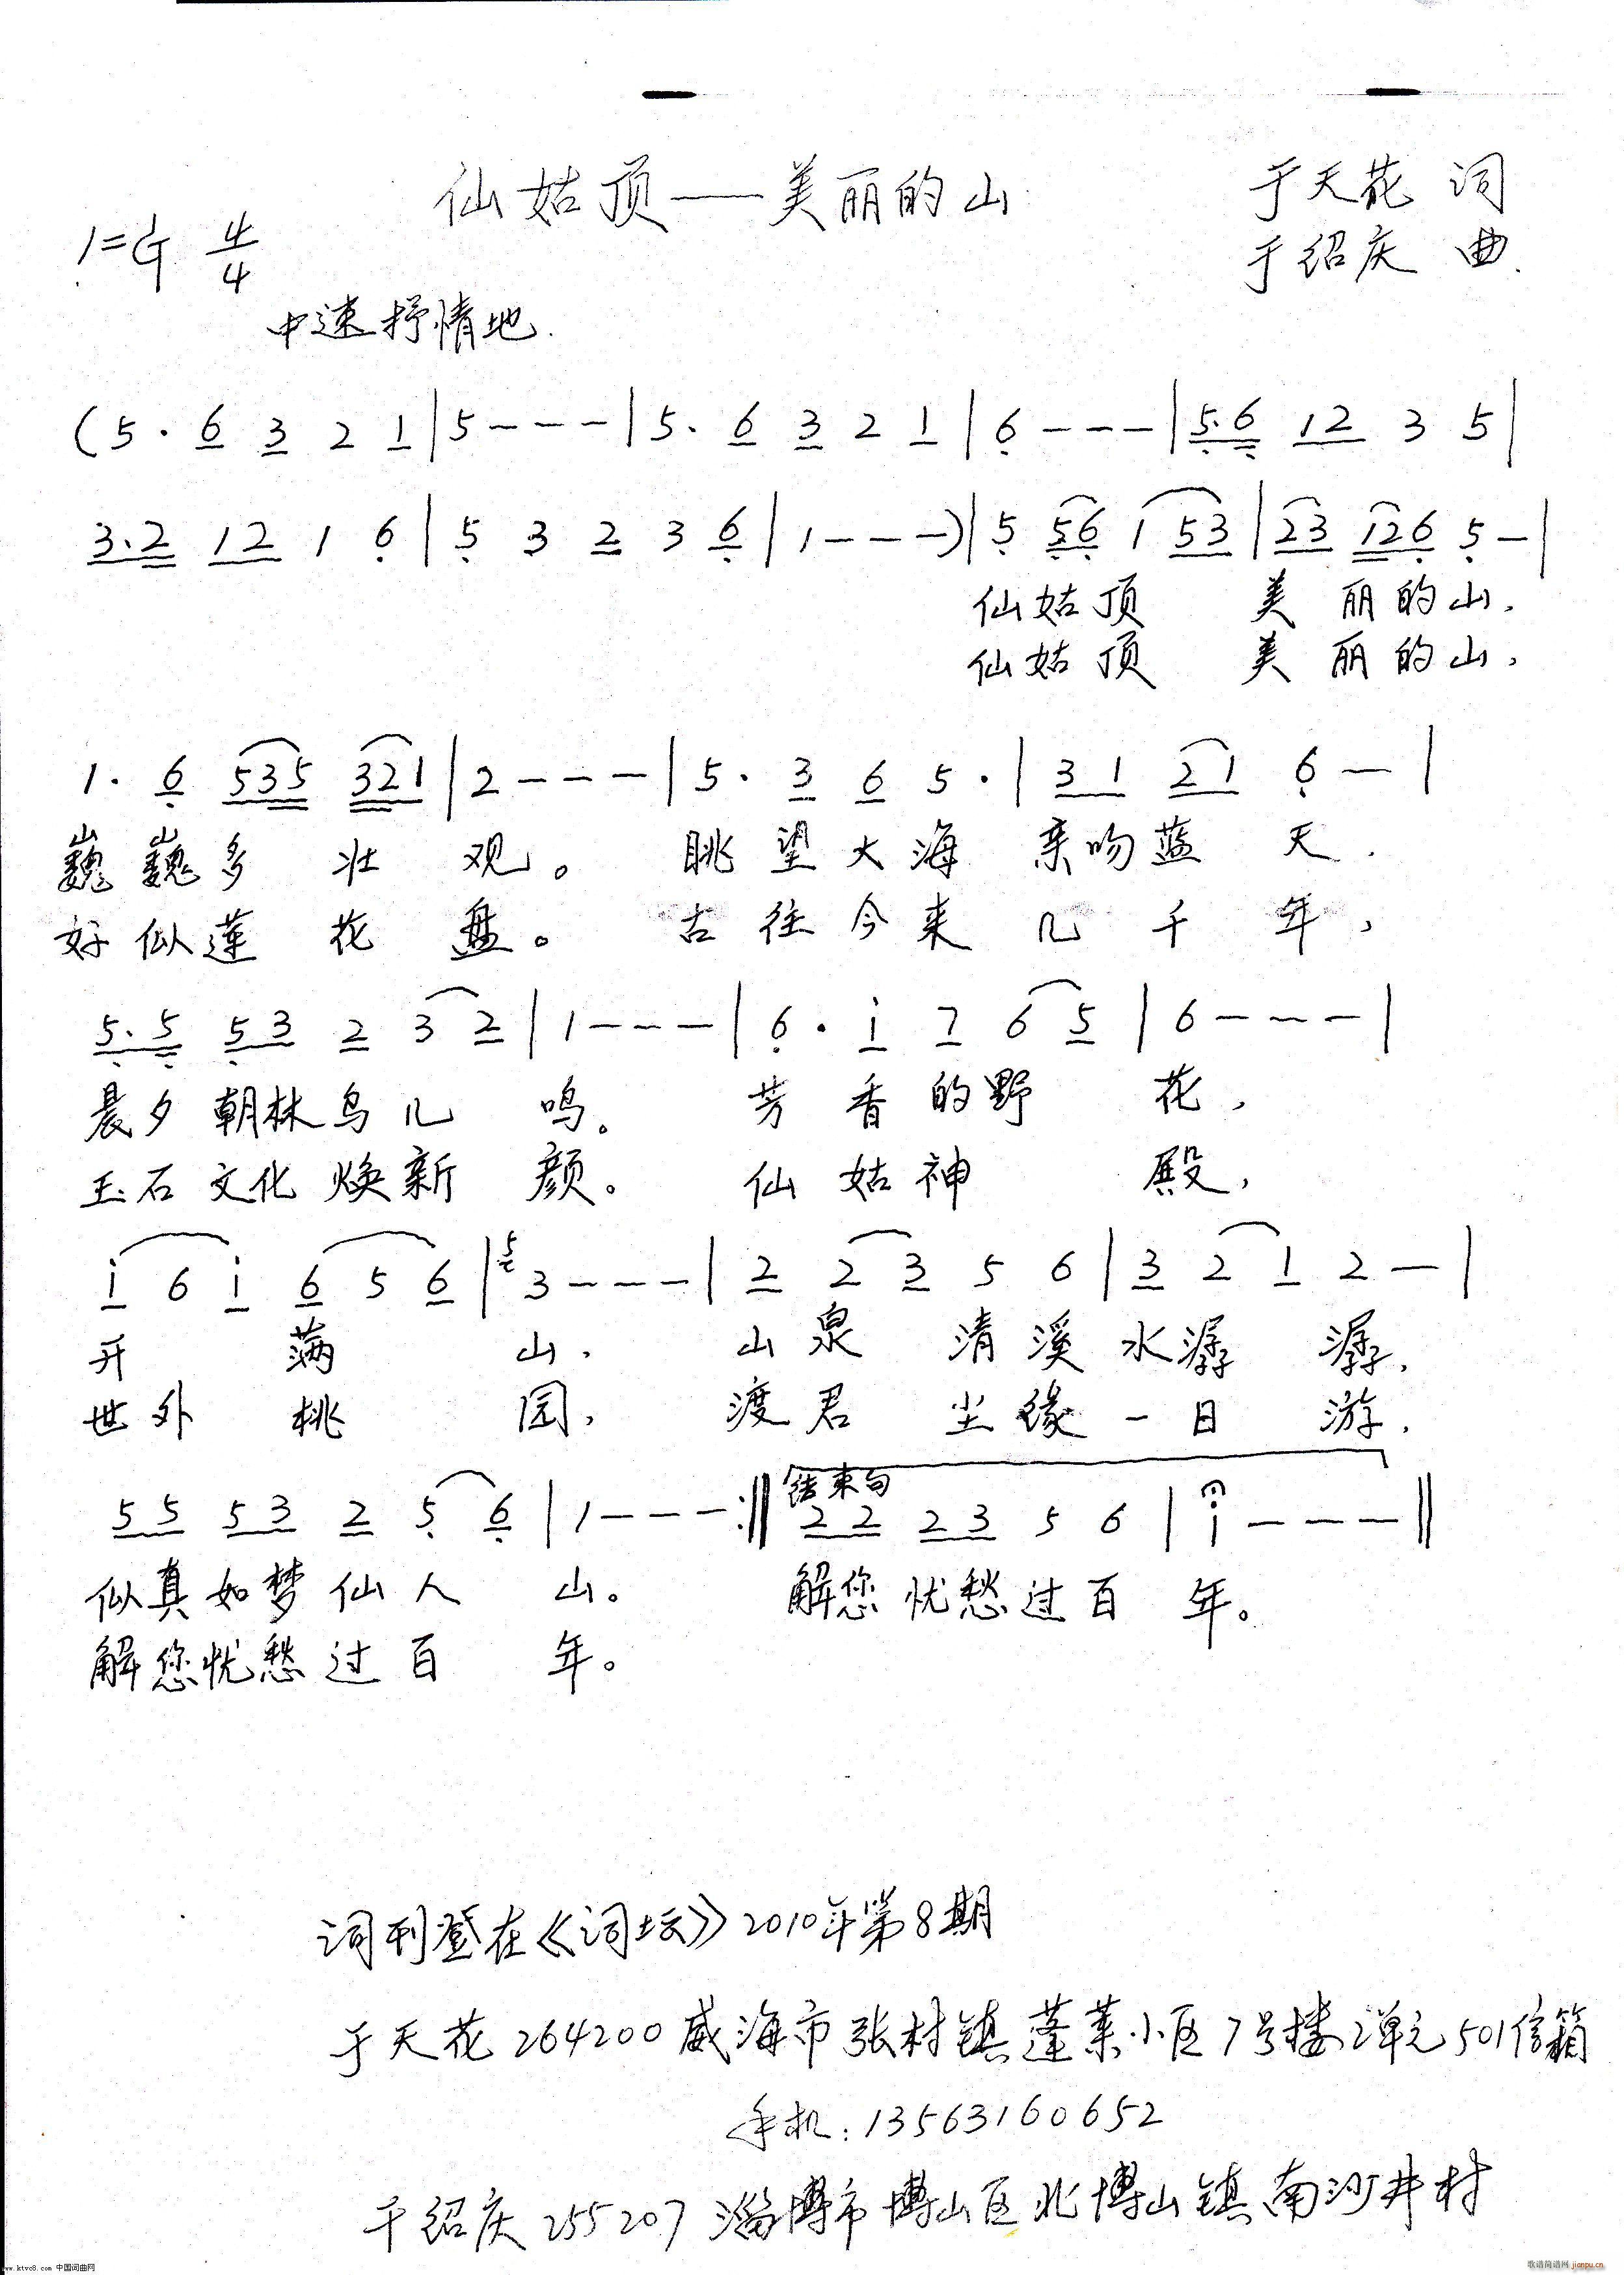 仙姑顶——美丽的山
于天花 词
1=G 4/4
于绍庆 曲
中速抒情地
(5· 6 3 2 1|5 - - -|5· 6 3 2 1|6 - - -|5·6 12 3 5|
3·2 12 1 6|5 3 2 3 6|1 - - -)|5 56 1 53|23 126 5 -|
仙姑顶 美丽的山,
仙姑顶 美丽的山,
1· 6 535 321|2 - - -|5· 3 6 5·|31 21 6 -|
巍巍多壮观。 眺望大海亲吻蓝天.
好似莲花盘。 古往今来几千年,
5·5 53 2 3 2|1 - - -|6· i 7 6 5|6 - - -|
晨夕朝林鸟儿鸣。 芳香的野花,
玉石文化焕新颜。 仙姑神殿,
i 6 i 6 5 6|5 3 - - -|2 2 3 5 6|3 2 1 2 -|
开满山. 山泉清溪水潺潺,
世外桃园, 渡君尘缘一日游.
结束句
55 53 2 5 6|1 - - -:‖22 23 5 6|i - - -‖
似真如梦仙人山。 解您忧愁过百年。
解您忧愁过百年。
词刊登在《词坛》2010年第8期
于天花 264200 威海市张村镇蓬莱小区7号楼2单元501信箱
手机:13563160652
于绍庆 255207 淄博市博山区北博山镇南沙井村
www.ktvc8.com 中国词曲网
歌谱简谱网 jianpu.cn